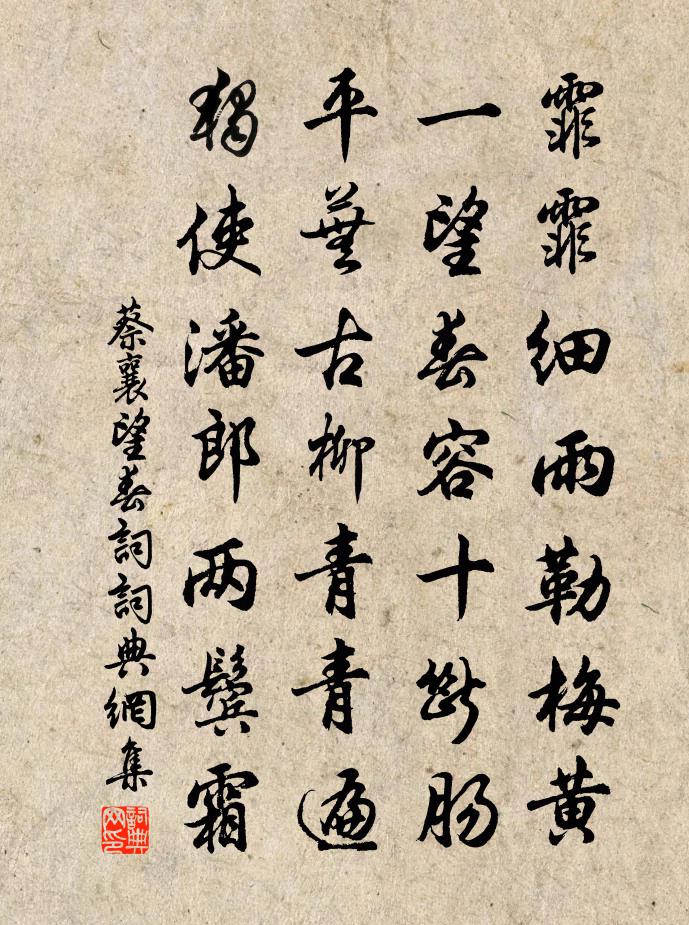 霏霏細雨勒梅黄
一望春容十斷肠
平蕪古柳青青遍
獨使潘郎两鬓霜
蔡襄望春詞詞典網集
詞典网印